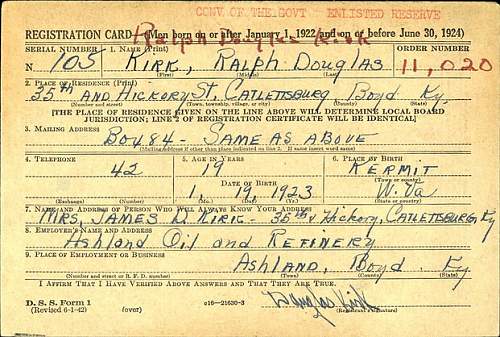 CONV. OF THE GOVT - ENLISTED RESERVE
REGISTRATION CARD—(Men born on or after January 1, 1922 and on or before June 30, 1924)
Ralph Douglas Kirk
SERIAL NUMBER 1. NAME (Print) ORDER NUMBER
N 105 KIRK, RALPH DOUGLAS 11,020
(First) (Middle) (Last)
2. PLACE OF RESIDENCE (Print)
35TH AND HICKORY ST, CATLETTSBURG BOYD KY.
(Number and street) (Town, township, village, or city) (County) (State)
[THE PLACE OF RESIDENCE GIVEN ON THE LINE ABOVE WILL DETERMINE LOCAL BOARD
JURISDICTION; LINE 2 OF REGISTRATION CERTIFICATE WILL BE IDENTICAL]
3. MAILING ADDRESS
BOX 484 - SAME AS ABOVE
[Mailing address if other than place indicated on line 2. If same insert word same]
4. TELEPHONE 5. AGE IN YEARS 6. PLACE OF BIRTH
42 19 KERMIT
DATE OF BIRTH (Town or county)
1, 19, 1923 W. Va
(Exchange) (Number) (Mo.) (Day) (Yr.) (State or country)
7. NAME AND ADDRESS OF PERSON WHO WILL ALWAYS KNOW YOUR ADDRESS
MRS, JAMES W. KIRK - 35TH & Hickory, CATLETTSBURG, Ky
8. EMPLOYER'S NAME AND ADDRESS
Ashland Oil and REFINERY
9. PLACE OF EMPLOYMENT OR BUSINESS
ASHLAND, BOYD. Ky
(Number and street or R. F. D. number) (Town) (County) (State)
I AFFIRM THAT I HAVE VERIFIED ABOVE ANSWERS AND THAT THEY ARE TRUE.
D. S. S. Form 1
(Revised 6-1-42) (over) c16-21630-3 Douglas Kirk
(Registrant's signature)